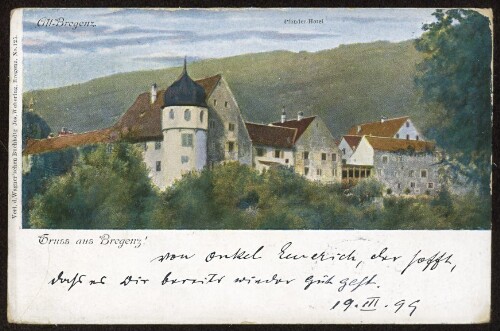 Alt-Bregenz
Pfänder Hotel
Verl. d. Wagner'schen Buchhdlg. Jos. Wehering, Bregenz. No. 125.
Gruss aus Bregenz!
von onkel Emerich, der hofft,
dass es Dir bereits wieder gut geht.
19. III. 99